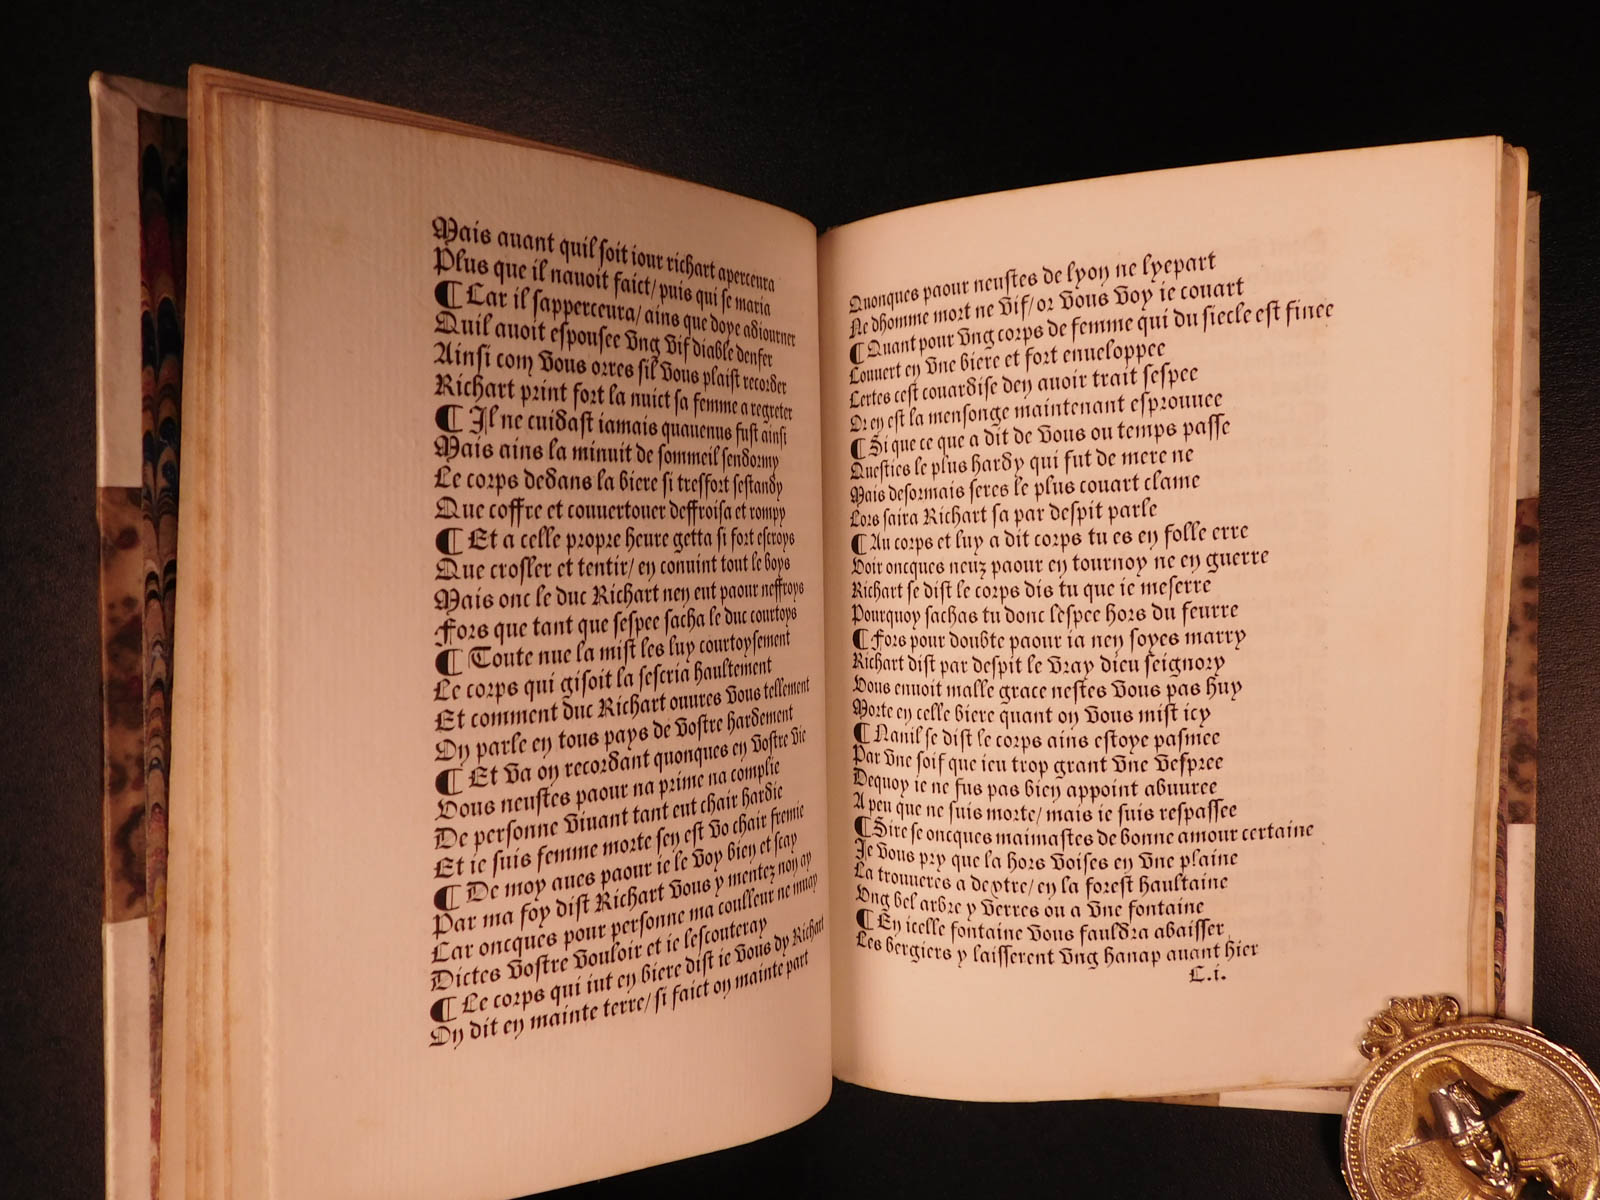 Mais auant quil soit iour richart aperceura
Plus que il nauoit faict/ puis qui se maria
¶ Car il sapperceura/ ains que doye adiourner
Quil auoit espousee vng vif diable denfer
Ainsi com vous orres sil vous plaist recorder
Richart print fort la nuict sa femme a regreter
¶ Il ne cuidast iamais quauenus fust ainsi
Mais ains la minuit de sommeil sendormy
Le corps dedans la biere si tresfort sestandy
Que coffre et couuertouer deffroisa et rompy
¶ Et a celle propre heure getta si fort escroys
Que crosler et tentir/ en conuint tout le boys
Mais onc le duc Richart nen eut paour neffroys
Fors que tant que sespee sacha le duc courtoys
¶ Toute nue la mist les luy courtoysement
Le corps qui gisoit la sescria haultement
Et comment duc Richart ouures vous tellement
On parle en tous pays de vostre hardement
¶ Et va on recordant quonques en vostre vie
Vous neustes paour na prime na complie
De personne viuant tant eut chair hardie
Et ie suis femme morte sen est vo chair fremie
¶ De moy aues paour ie le voy bien et scay
Par ma foy dist Richart vous y mentez non ay
Car oncques pour personne ma coulleur ne muay
Dictes vostre vouloir et ie lescouteray
¶ Le corps qui iut en biere dist ie vous dy Richart
On dit en mainte terre/ si faict on mainte part
Quonques paour neustes de lyon ne lyepart
Ne dhomme mort ne vif/ or vous voy ie couart
¶ Quant pour vng corps de femme qui du siecle est finee
Couuert en vne biere et fort enueloppee
Certes cest couardise den auoir trait sespee
Or en est la mensonge maintenant esprouuee
¶ Si que ce que a dit de vous ou temps passe
Questies le plus hardy qui fut de mere ne
Mais desormais seres le plus couart clame
Lors saira Richart sa par despit parle
¶ Au corps et luy a dit corps tu es en folle erre
Voir oncques neuz paour en tournoy ne en guerre
Richart se dist le corps dis tu que ie meserre
Pourquoy sachas tu donc lespee hors du feurre
¶ Fors pour doubte paour ia nen soyes marry
Richart dist par despit le vray dieu seignory
Vous enuoit malle grace nestes vous pas huy
Morte en celle biere quant on vous mist icy
¶ Nanil se dist le corps ains estoye pasmee
Par vne soif que ieu trop grant vne vespree
Dequoy ie ne fus pas bien appoint abuuree
A peu que ne suis morte/ mais ie suis respassee
¶ Sire se oncques maimastes de bonne amour certaine
Je vous pry que la hors voises en vne plaine
La trouueres a dextre/ en la forest haultaine
Vng bel arbre y verres ou a vne fontaine
¶ En icelle fontaine vous fauldra abaisser
Les bergiers y laisserent vng hanap auant hier
C.i.